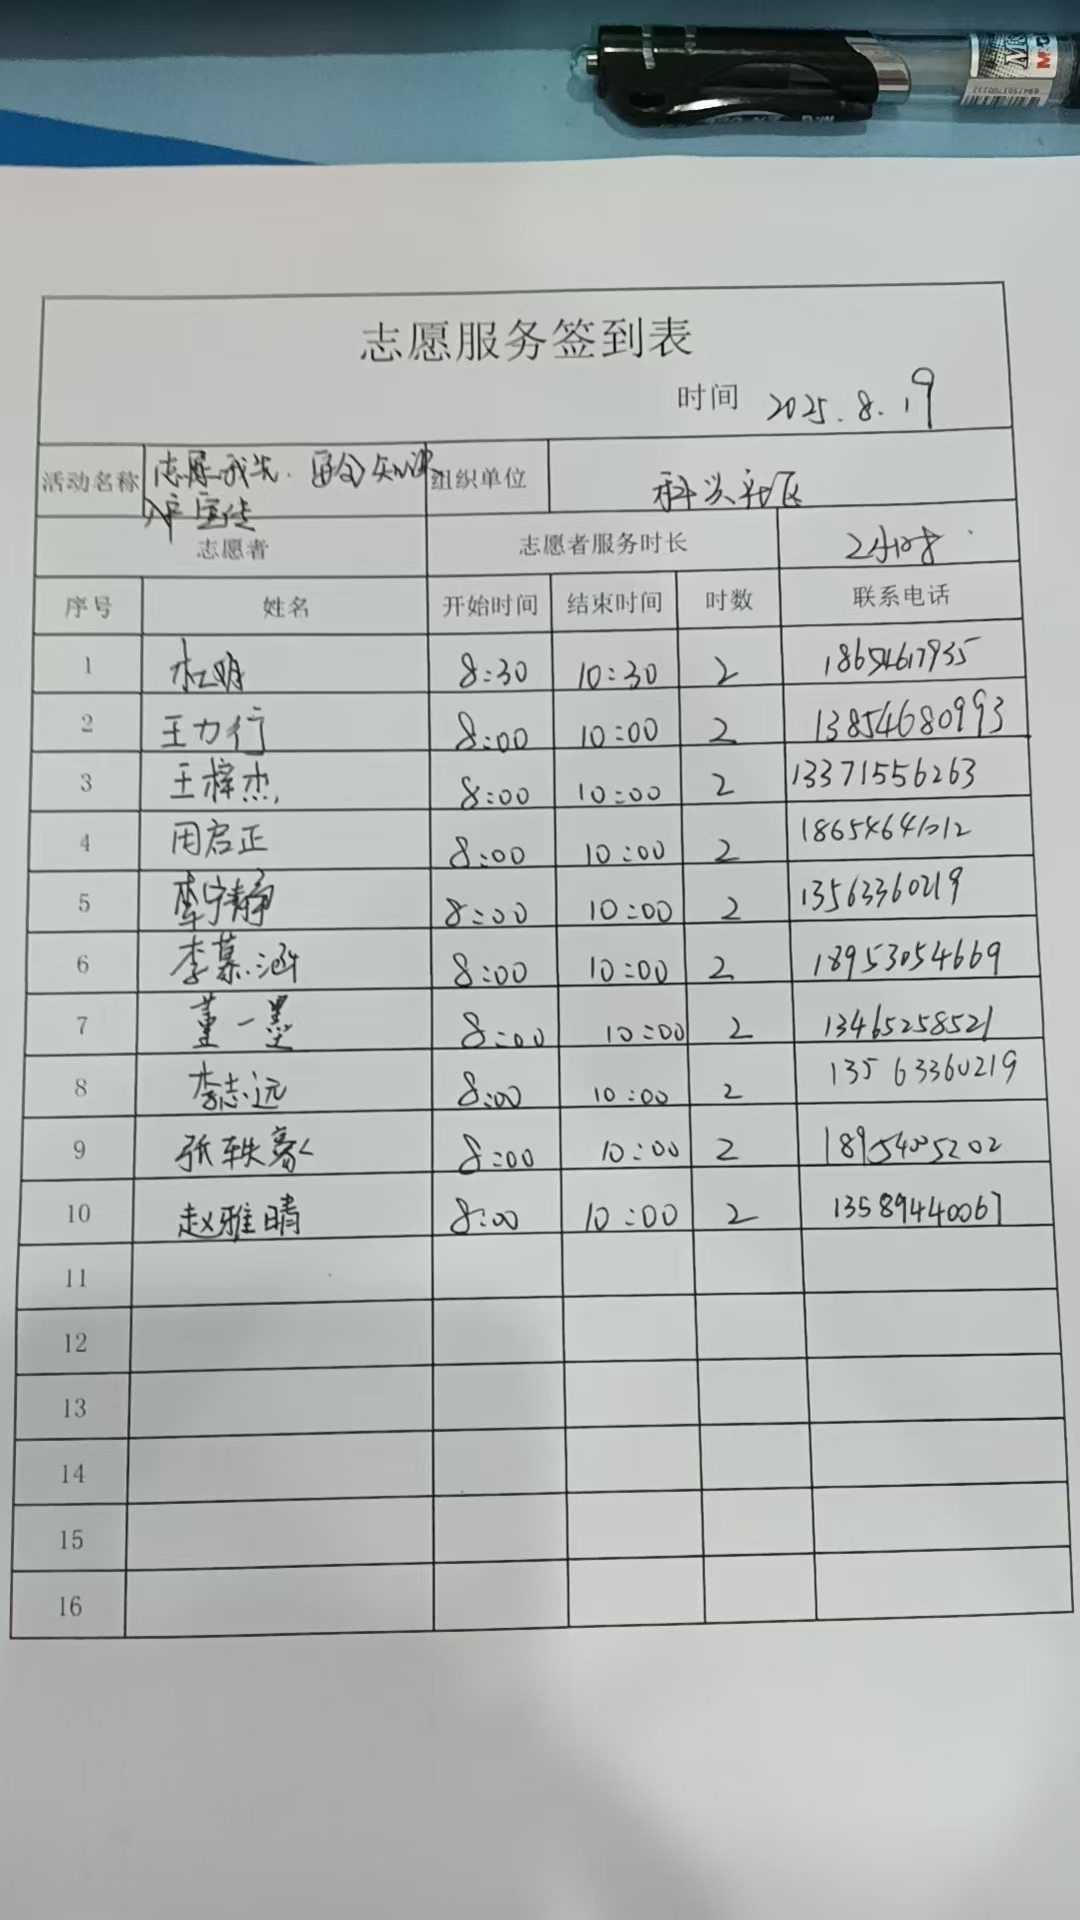 志愿服务签到表
时间 2025.8.19
活动名称 志愿我先.安全知识 组织单位 科兴社区
入户宣传
志愿者 志愿者服务时长 2小时
序号 姓名 开始时间 结束时间 时数 联系电话
1 杜明 8:30 10:30 2 18654617935
2 王力行 8:00 10:00 2 13854680993
3 王梓杰 8:00 10:00 2 13371556263
4 周启正 8:00 10:00 2
5 李宁静 8:00 10:00 2 13563360219
6 李慕涵 8:00 10:00 2 18953054669
7 董一墨 8:00 10:00 2 13465258521
8 李志远 8:00 10:00 2 13563360219
9 张轶 8:00 10:00 2 18954005202
10 赵雅晴 8:00 10:00 2 13589440067
11
12
13
14
15
16